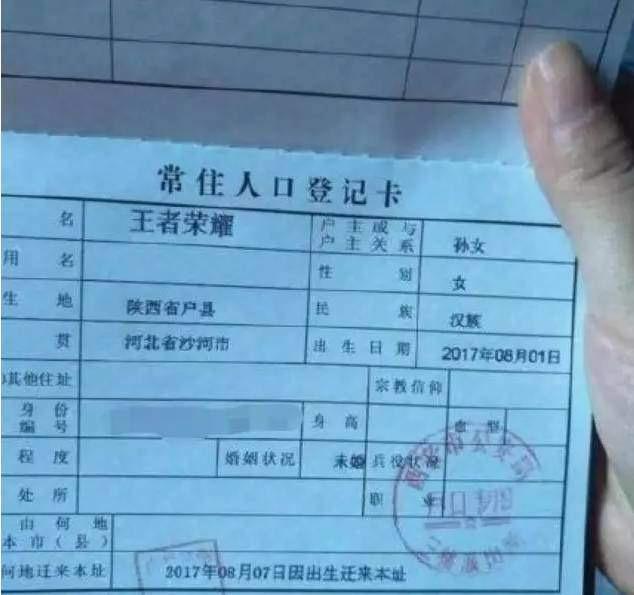 常住人口登记卡
名 王者荣耀 户主或与户主关系 孙女
用名 性别 女
生地 陕西省户县 民族 汉族
贯 河北省沙河市 出生日期 2017年08月01日
其他住址 宗教信仰
身份编号 身高 血型
程度 婚姻状况 未婚 兵役状况
处所 职业
由何地
本市(县)
何地迁来本址 2017年08月07日因出生迁来本址